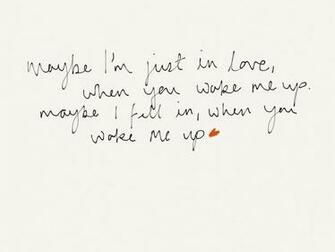 maybe I'm just in love,
when you wake me up.
maybe I fell in, when you
wake me up